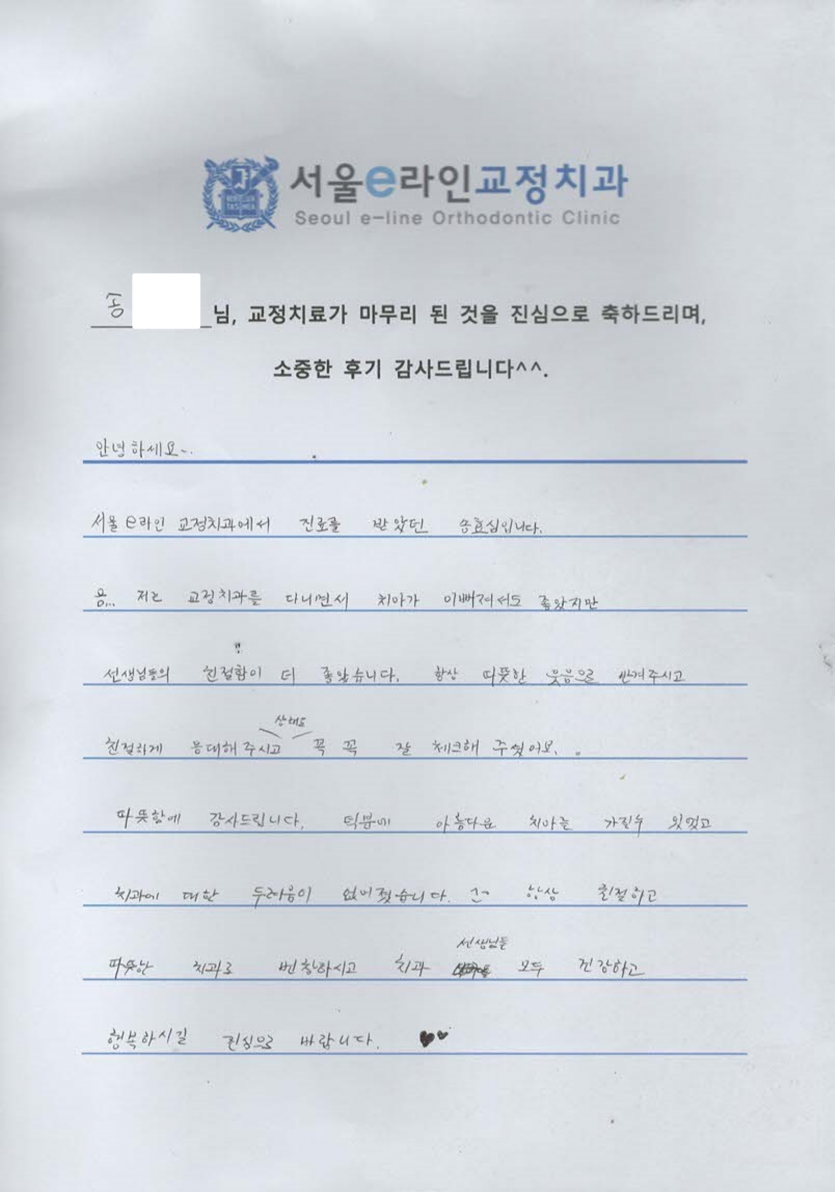 서울e라인교정치과
Seoul e-line Orthodontic Clinic
송 님, 교정치료가 마무리 된 것을 진심으로 축하드리며,
소중한 후기 감사드립니다^^.
안녕하세요~.
서울e라인 교정치과에서 진료를 받았던 송효심입니다.
음... 저는 교정치과를 다니면서 치아가 이뻐져서도 좋았지만
선생님들의 친절함이 더 좋았습니다. 항상 따뜻한 웃음으로 반겨주시고
상태도
친절하게 응대해 주시고 꼭 꼭 잘 체크해 주셨어요.
따뜻함에 감사드립니다. 덕분에 아름다운 치아를 가질수 있었고
치과에 대한 두려움이 없어졌습니다. 항상 친절하고
선생님들
따뜻한 치과로 번창하시고 치과 모두 건강하고
행복하시길 진심으로 바랍니다. ♥♥